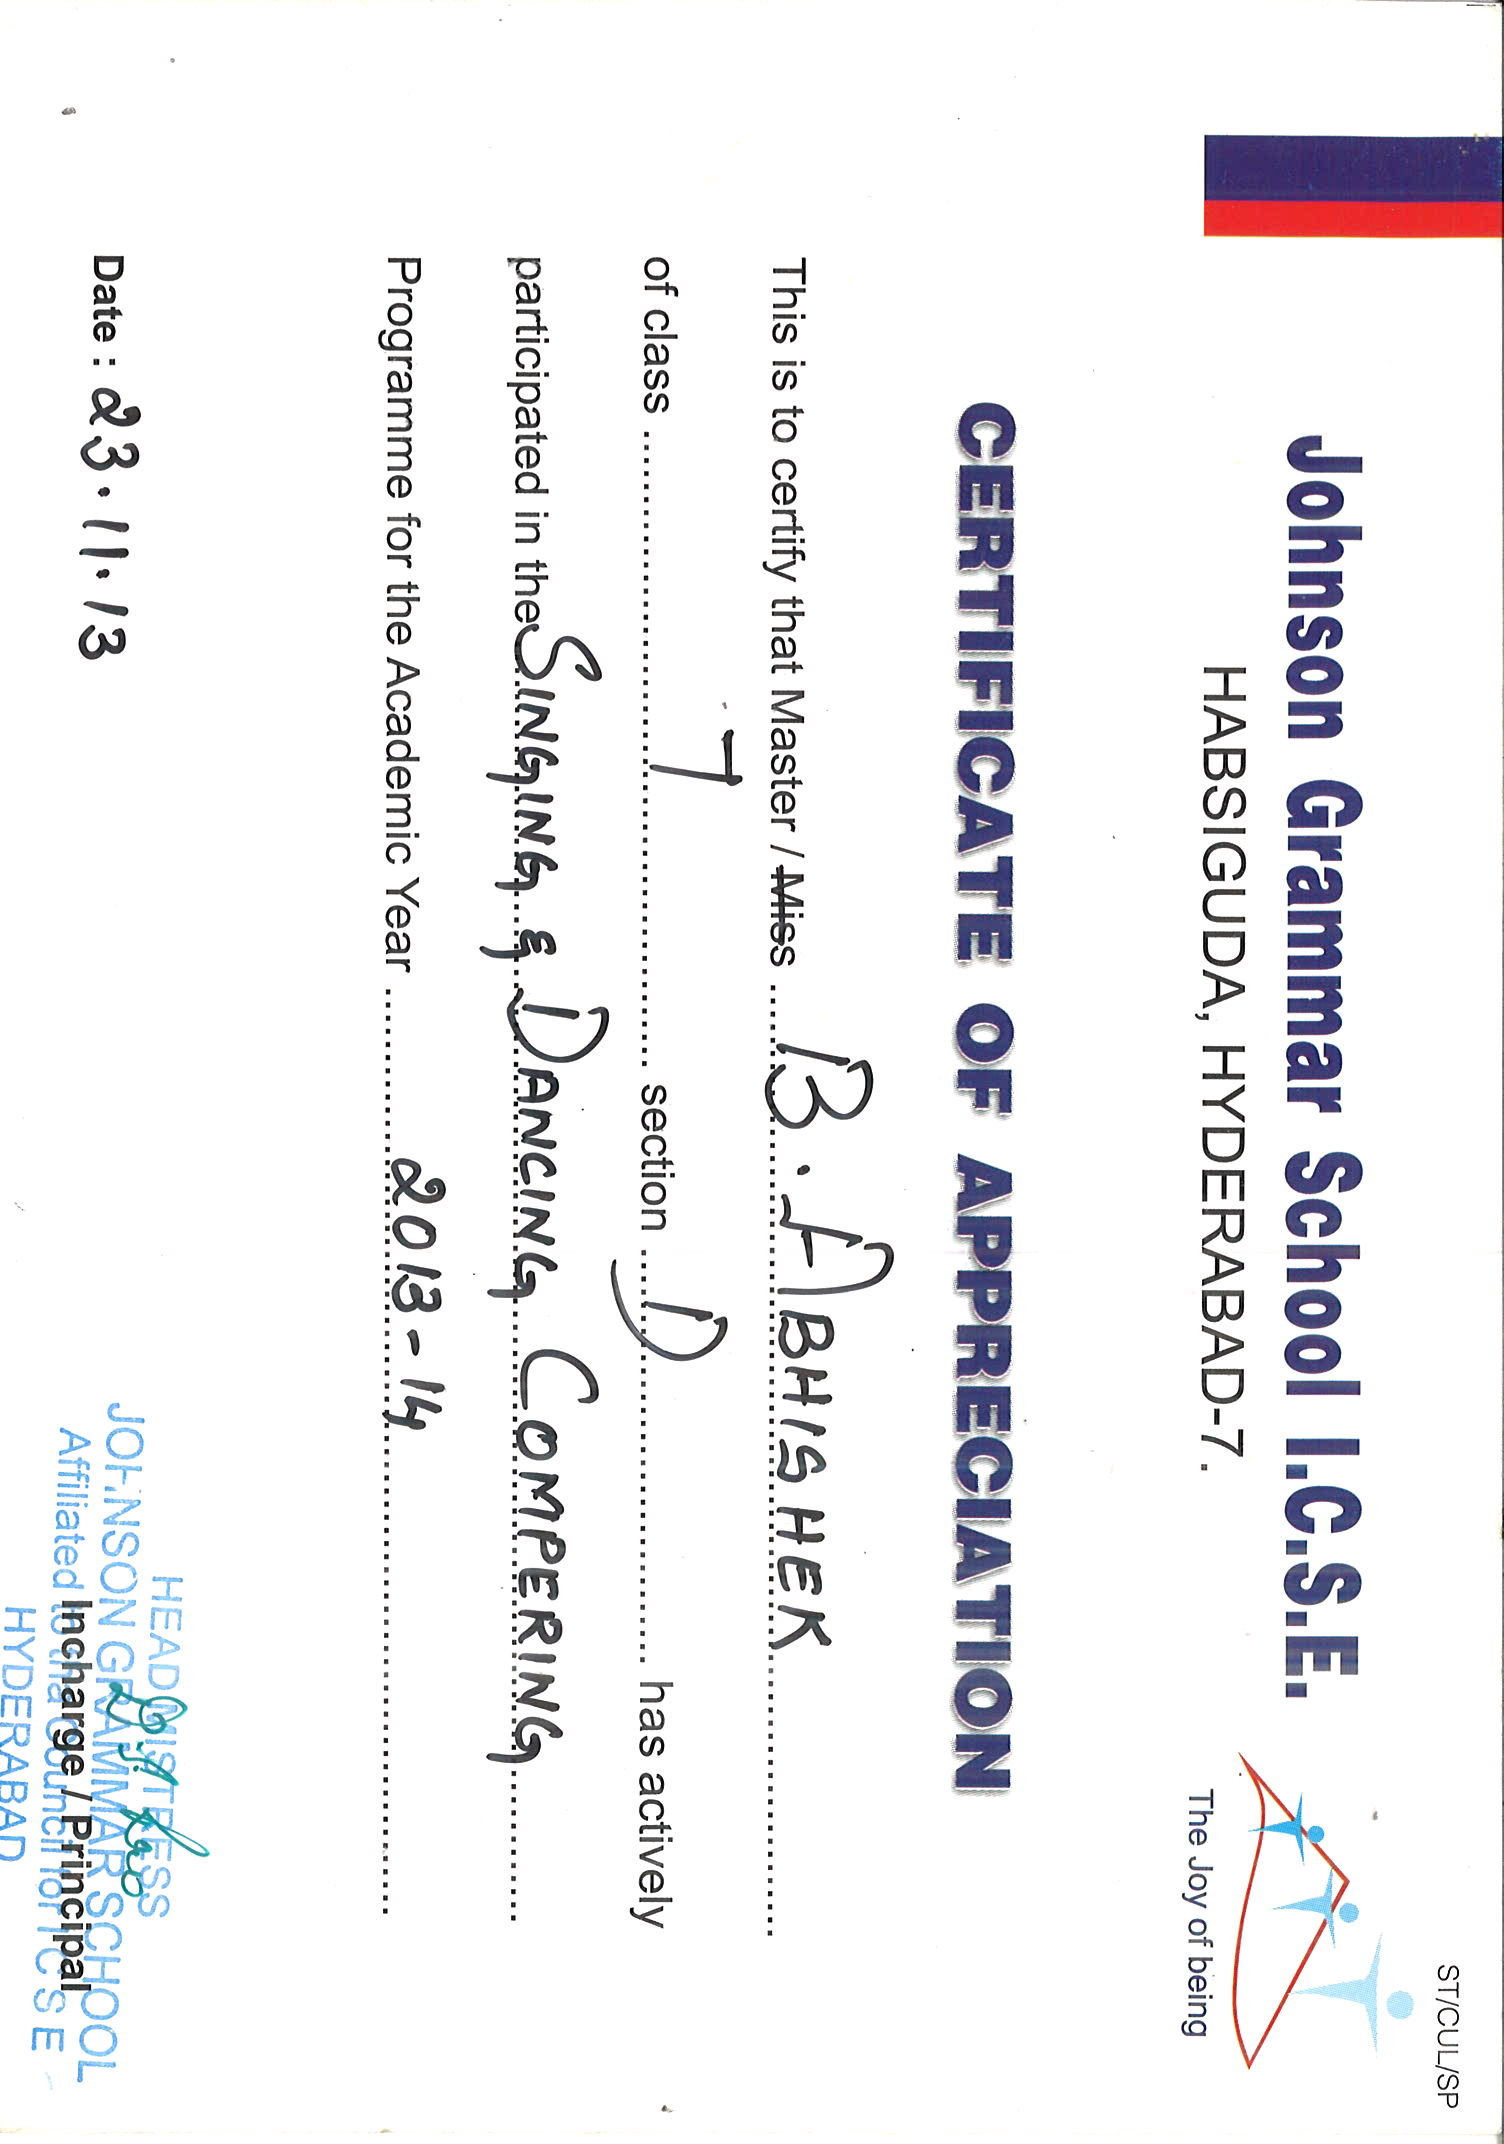 ST/CUL/SP
Johnson Grammar School I.C.S.E.
HABSIGUDA, HYDERABAD-7.
The Joy of being
CERTIFICATE OF APPRECIATION
This is to certify that Master / Miss B. ABHISHEK
of class 7 section D has actively
participated in the SINGING & DANCING COMPERING
Programme for the Academic Year 2013-14
Date : 23.11.13
HEAD MISTRESS
JOHNSON GRAMMAR SCHOOL
Incharge / Principal
Affiliated to tha Council for I C S E
HYDERABAD